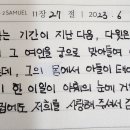 2SAMUEL 11장 27절 2023. 6
는 기간이 지난 다음, 다윗은
그 여인을 궁으로 맞아들여
데, 그의 몸에서 아들이 태
한 이 일이 야훼의 눈에 거
에도 저희를 사랑해 주셔서 감